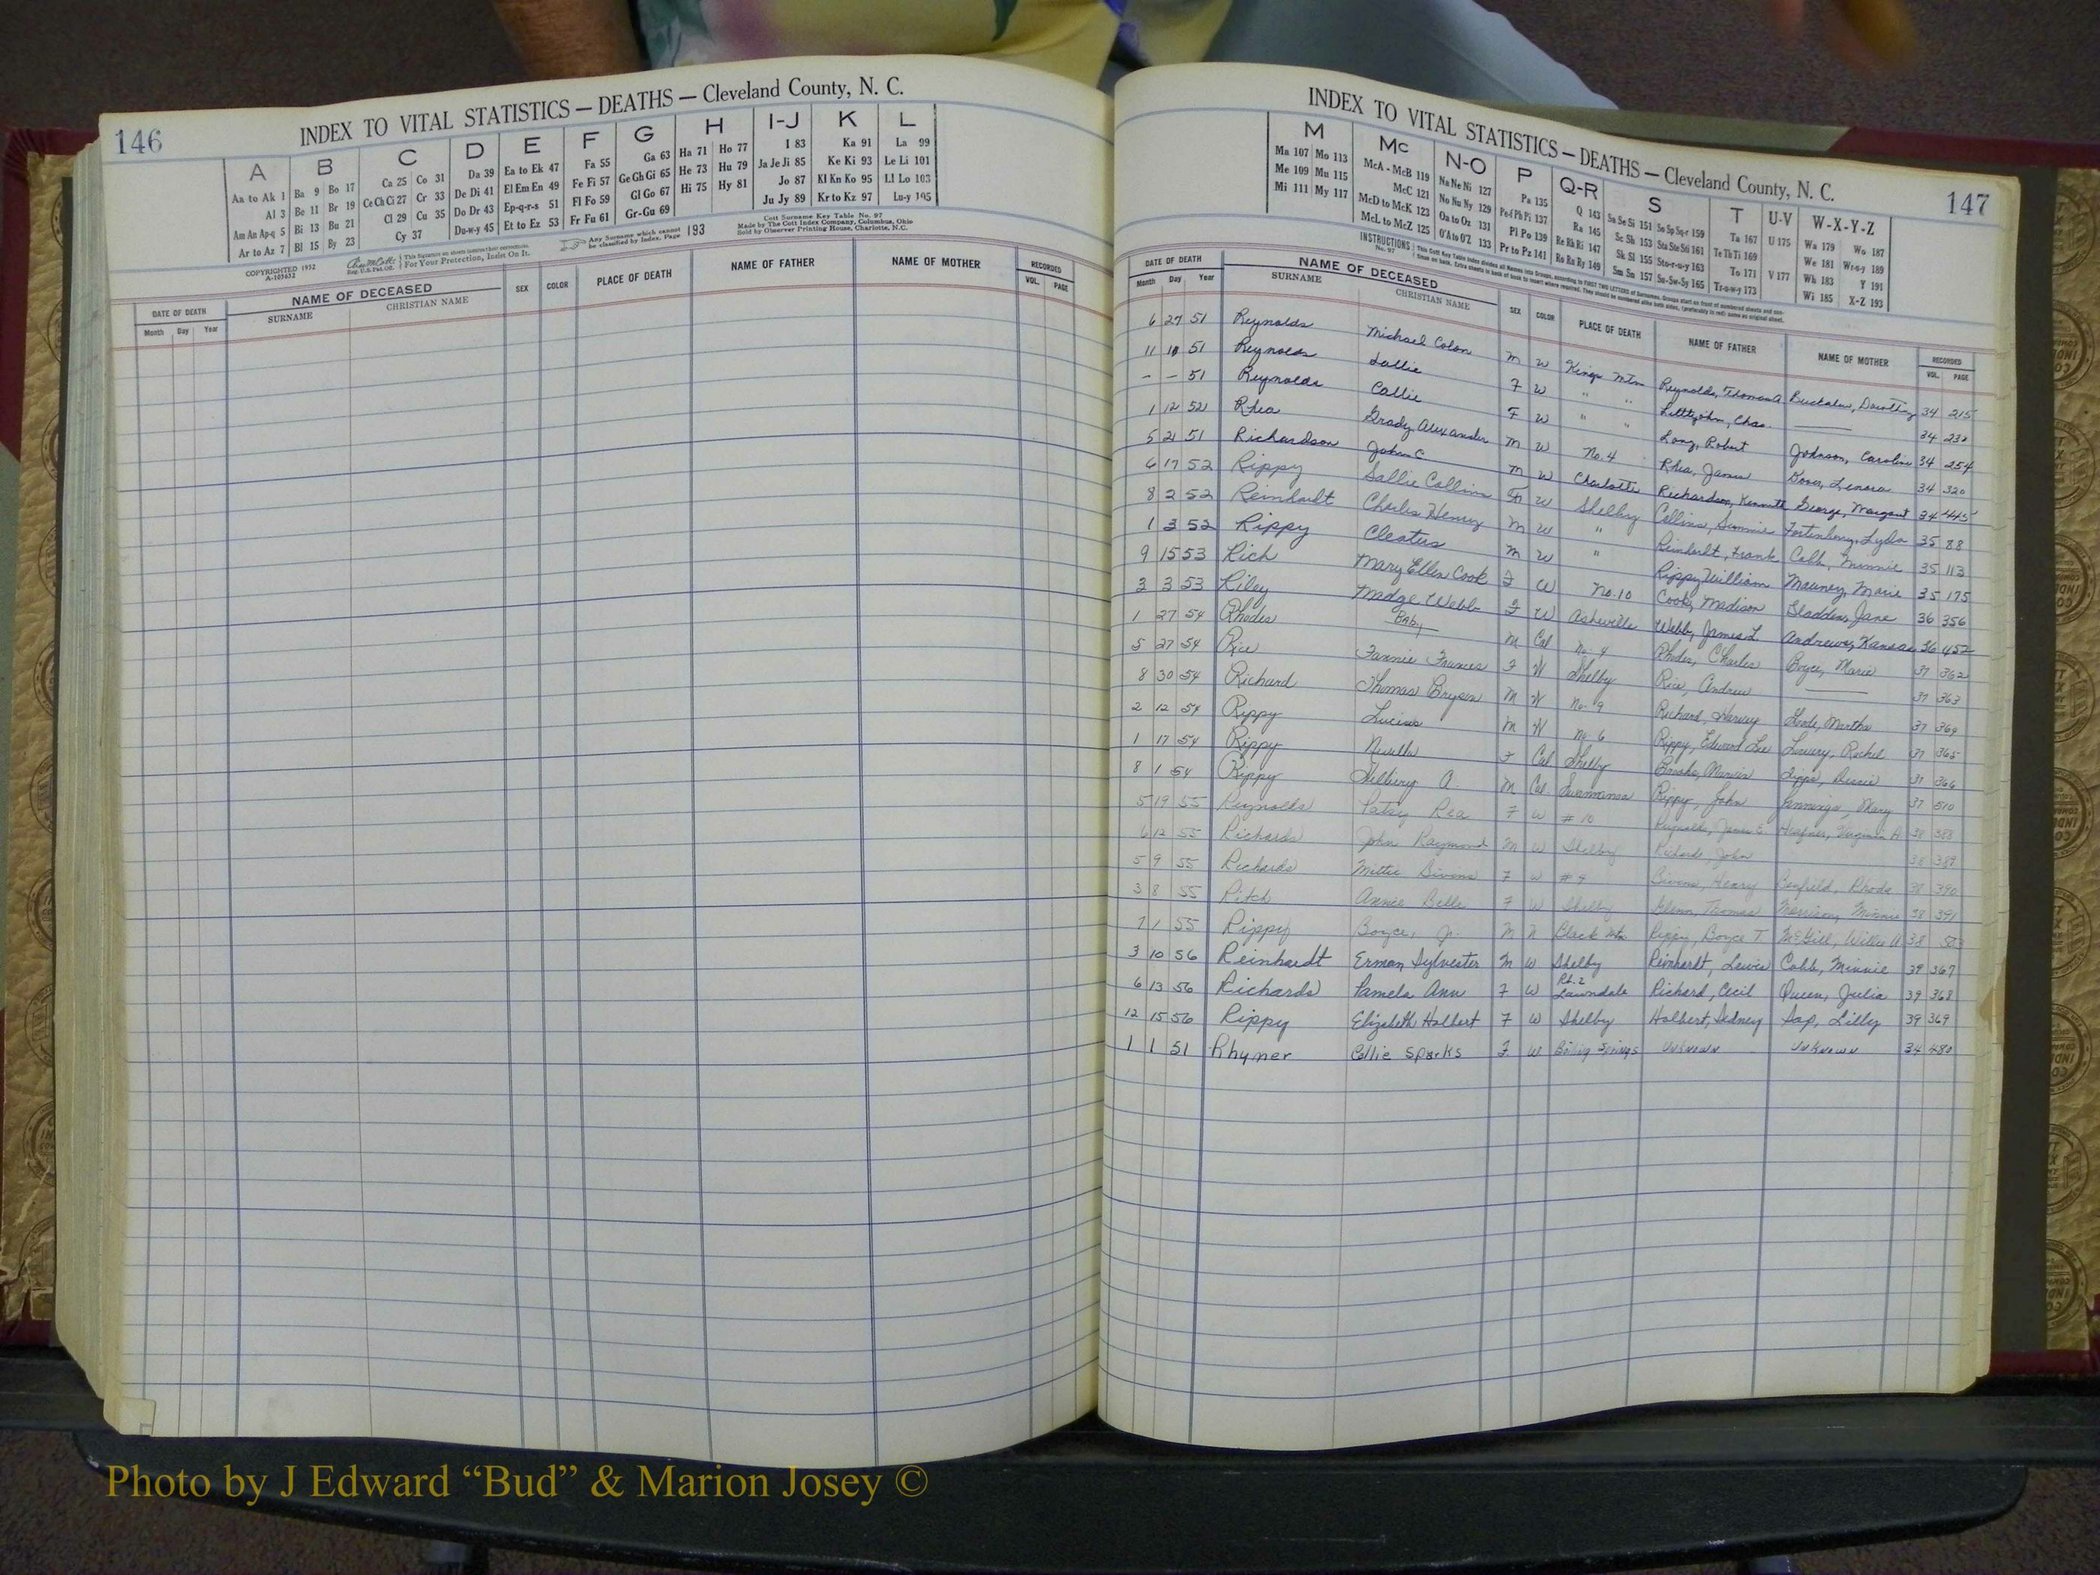 146
INDEX TO VITAL STATISTICS — DEATHS — Cleveland County, N. C.
A B C D E F G H I-J K L
Aa to Ak 1 Ba 9 Bo 17 Ca 25 Co 31 Da 39 Ea to Ek 47 Fa 55 Ga 63 Ha 71 Ho 77 I 83 Ka 91 La 99
Al 3 Be 11 Br 19 Ce Ch Ci 27 Cr 33 De Di 41 El Em En 49 Fe Fi 57 Ge Gh Gi 65 He 73 Hu 79 Ja Je Ji 85 Ke Ki 93 Le Li 101
Am An Ap-q 5 Bi 13 Bu 21 Cl 29 Cu 35 Do Dr 43 Ep-q-r-s 51 Fl Fo 59 Gl Go 67 Hi 75 Hy 81 Jo 87 Kl Kn Ko 95 Ll Lo 103
Ar to Az 7 Bl 15 By 23 Cy 37 Du-w-y 45 Et to Ez 53 Fr Fu 61 Gr-Gu 69 Ju Jy 89 Kr to Kz 97 Lu-y 105
COPYRIGHTED 1932
A-103652
Reg. U.S. Pat. Off.
This Signature on sheets insures their correctness.
For Your Protection, Insist On It.
Any Surname which cannot be classified by Index, Page 193
Cott Surname Key Table No. 97
Made by The Cott Index Company, Columbus, Ohio
Sold by Observer Printing House, Charlotte, N.C.
DATE OF DEATH NAME OF DECEASED SEX COLOR PLACE OF DEATH NAME OF FATHER NAME OF MOTHER RECORDED
Month Day Year SURNAME CHRISTIAN NAME VOL. PAGE
147
INDEX TO VITAL STATISTICS — DEATHS — Cleveland County, N. C.
M Mc N-O P Q-R S T U-V W-X-Y-Z
Ma 107 Mo 113 McA - McB 119 Na Ne Ni 127 Pa 135 Q 143 Sa Se Si 151 So Sp Sq-r 159 Ta 167 U 175 Wa 179 Wo 187
Me 109 Mu 115 McC 121 No Nu Ny 129 Pe-f Ph Pi 137 Ra 145 Sc Sh 153 Sta Ste Sti 161 Te Th Ti 169 We 181 Wr-u-y 189
Mi 111 My 117 McD to McK 123 Oa to Oz 131 Pl Po 139 Re Rh Ri 147 Sk Sl 155 Sto-r-u-y 163 To 171 V 177 Wh 183 Y 191
McL to McZ 125 O'A to O'Z 133 Pr to Pz 141 Ro Ru Ry 149 Sm Sn 157 Su-Sw-Sy 165 Tr-u-w-y 173 Wi 185 X-Z 193
INSTRUCTIONS No. 97
DATE OF DEATH NAME OF DECEASED SEX COLOR PLACE OF DEATH NAME OF FATHER NAME OF MOTHER RECORDED
Month Day Year SURNAME CHRISTIAN NAME VOL. PAGE
6 27 51 Reynolds Michael Colon M W Kings Mtn Reynolds, Thomas A Dorothy 34 215
11 11 51 Reynolds Lallie F W " " Littlejohn, Chas. —— 34 232
- - 51 Reynolds Callie F W " " Long, Robert Johnson, Caroline 34 254
1 12 52 Rhea Grady Alexander M W No. 4 Rhea, James Dover, Lenora 34 320
5 21 51 Richardson John C. M W Charlotte Richardson, Kenneth George, Margaret 34 445
6 17 52 Rippy Sallie Collins F W Shelby Collins, Fortenberry, Lyda 35 88
8 2 52 Reinhardt Charles Henry M W " Reinhardt, Frank Cobb, Minnie 35 113
1 3 52 Rippy Cleatus M W " Rippy William Mauney, Marie 35 175
9 15 53 Rich Mary Ellen Cook F W No. 10 Cook, Madison Gladden, Jane 36 356
3 3 53 Riley Madge Webb F W Asheville Webb, James L Andrews, Kansas 36 452
1 27 54 Rhodes Baby M Col No 4 Rhodes, Charles Boyce, Marie 37 362
5 27 54 Rice Fannie Frances F W Shelby Rice, Andrew —— 37 363
8 30 54 Richard Thomas Bryson M W No. 9 Richard, Harvey Martha 37 364
2 12 54 Rippy Lucius M W No 6 Rippy, Edward Lee Lowery, Rachel 37 365
1 17 54 Rippy Novella F Col Shelby Brooks, Marvin Bessie 37 366
8 1 54 Rippy A. M Col Swannanoa Rippy, John Jennings, Mary 37 510
5 19 55 Reynolds Patsy Rea F W #10 Reynolds, James E Heafner, Virginia H 38 388
6 12 55 Richards John Raymond M W Shelby Richards, John 38 389
5 9 55 Richards Mittie Bivens F W #9 Bivens, Henry Canfield, Rhoda 38 390
3 8 55 Ritch Annie Belle F W Shelby Glenn, Thomas Morrison, Minnie 38 391
7 1 55 Rippy Boyce, Jr. M N Black Mtn Rippy, Boyce T McGill, Willie A 38
3 10 56 Reinhardt Erman Sylvester M W Shelby Reinhardt, Lewis Cobb, Minnie 39 367
6 13 56 Richards Pamela Ann F W Rt. 2 Lawndale Richard, Cecil Queen, Julia 39 368
12 15 56 Rippy Elizabeth Holbert F W Shelby Holbert, Sidney Sap, Lilly 39 369
1 1 51 Rhymer Collie Sparks F W Boilig Springs Unknown Unknown 34 480
Photo by J Edward “Bud” & Marion Josey ©